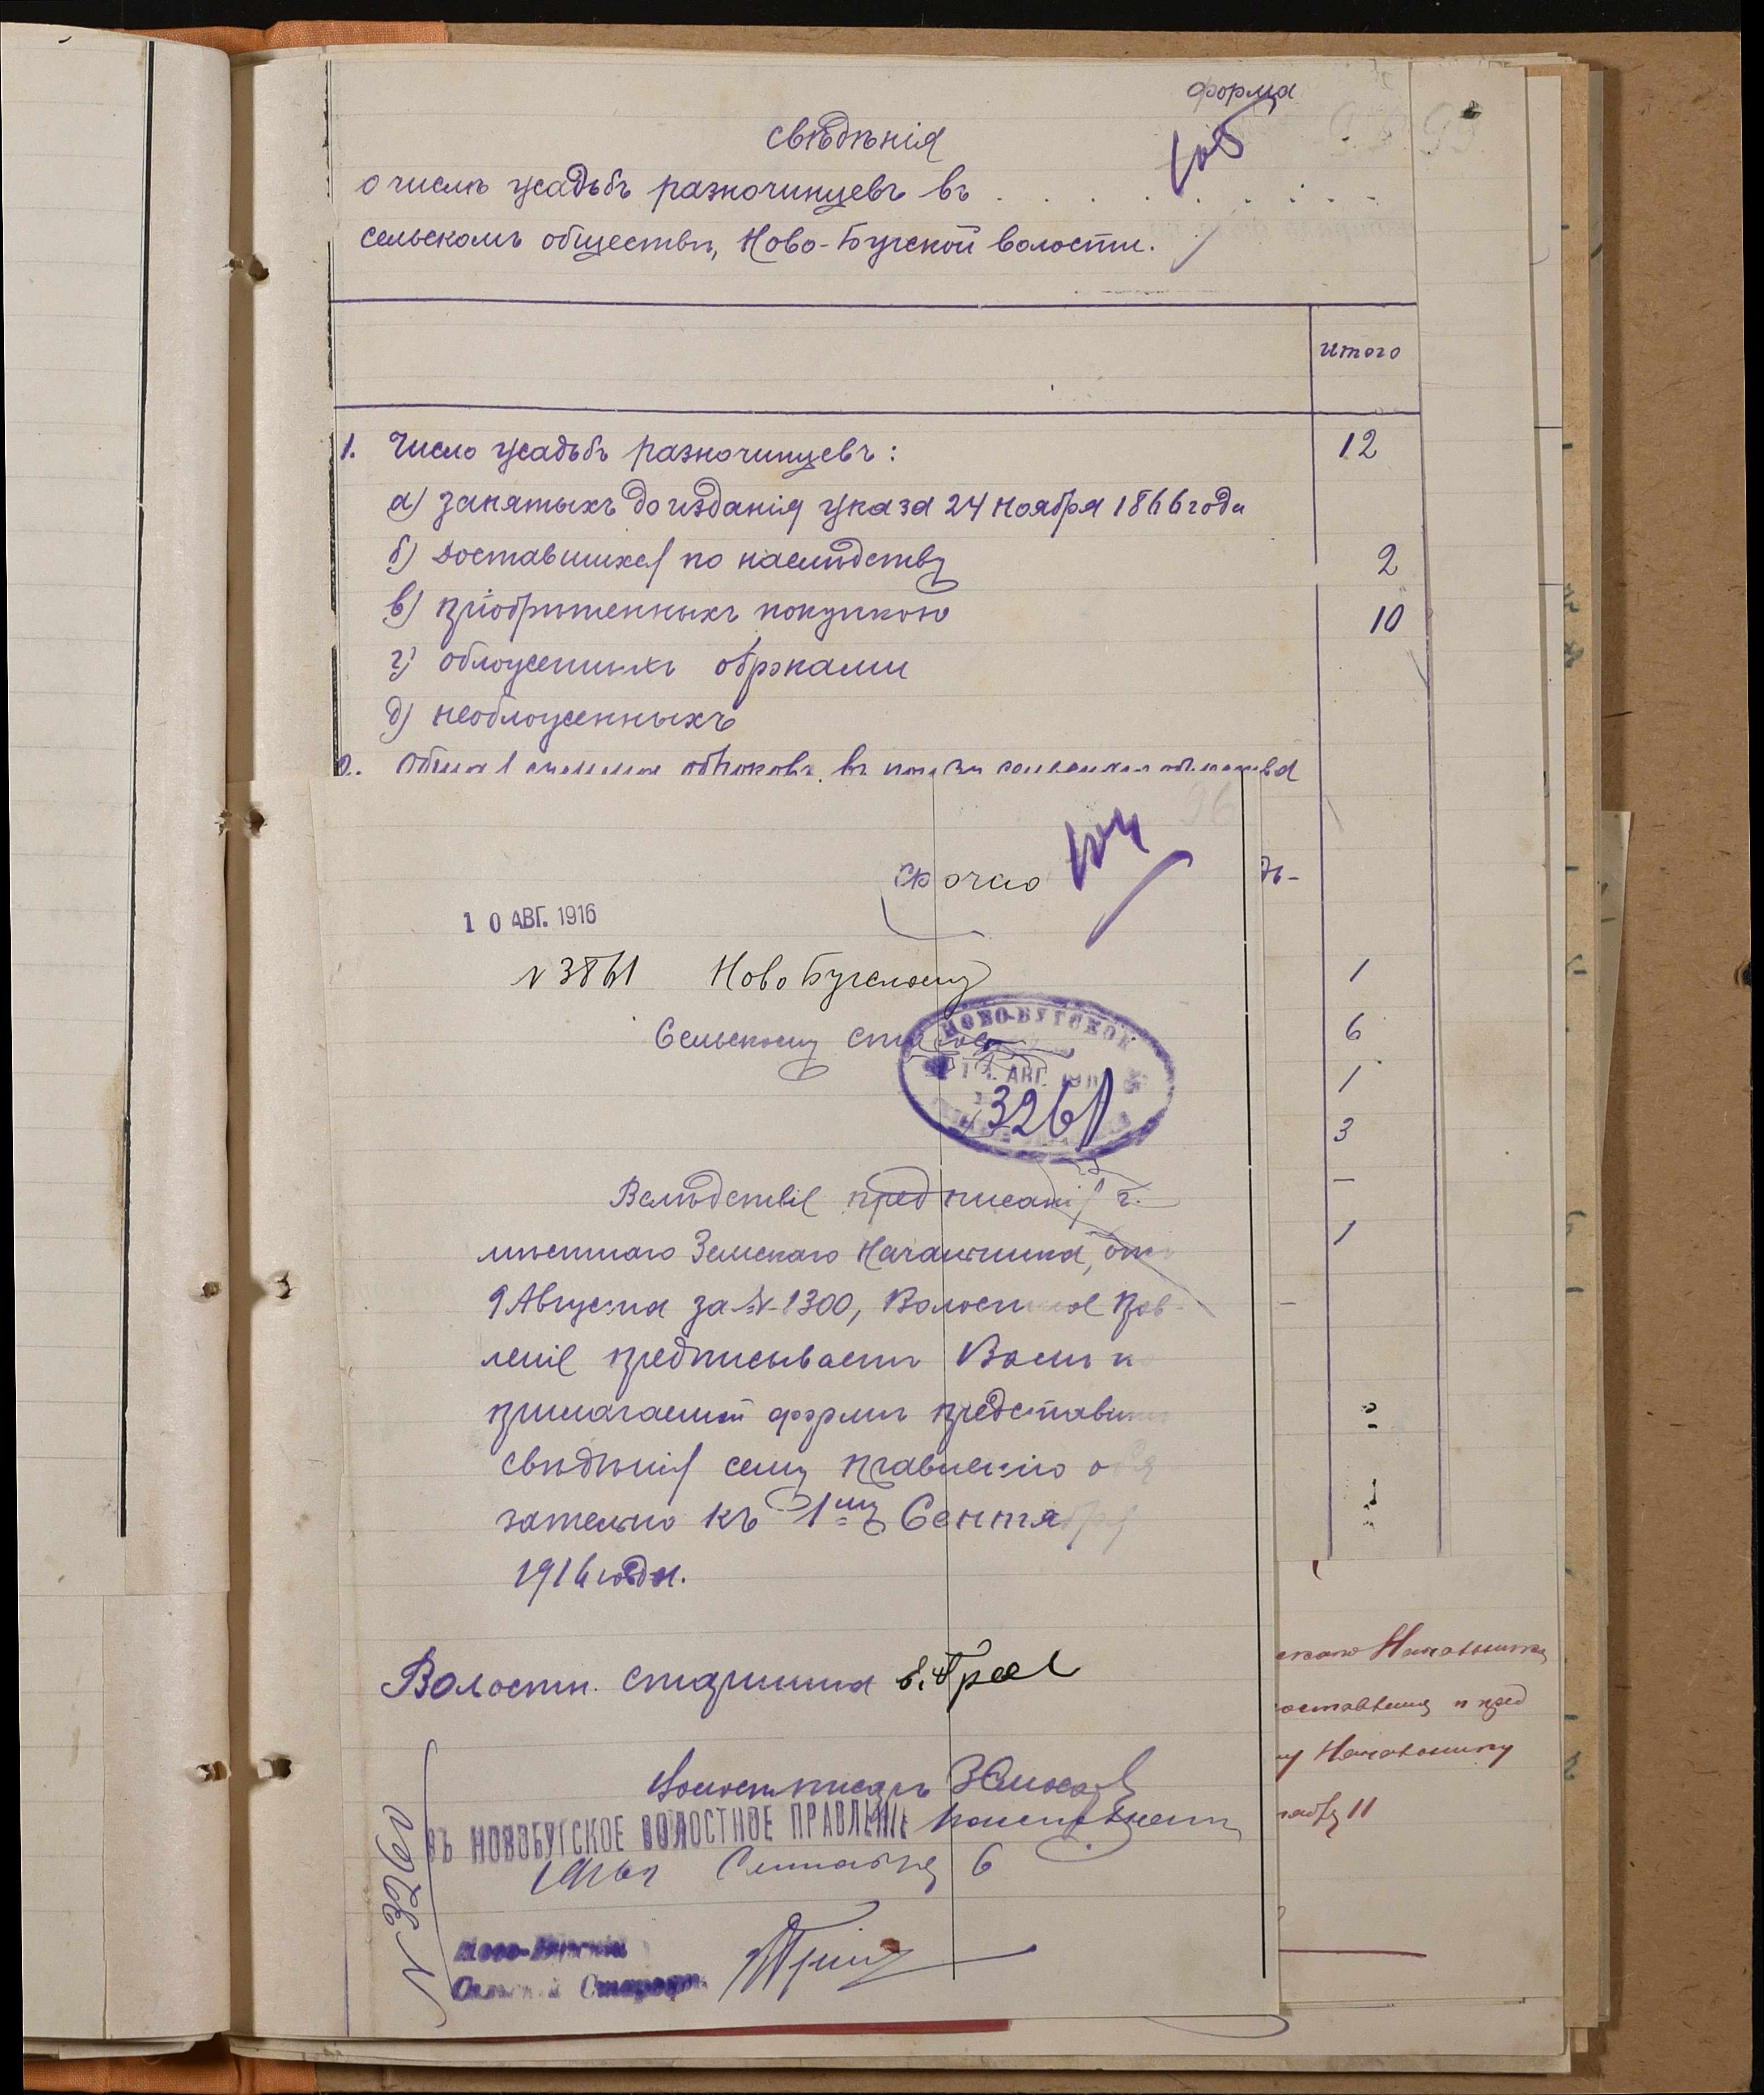 форма
105
свѣдѣнія
о числѣ усадьбъ разночинцевъ въ . . . . . . . .
сельскомъ обществѣ, Ново-Бугской волости.
итого
1. Число усадьбъ разночинцевъ: 12
а) занятыхъ до изданія указа 24 ноября 1866 года
б) доставшихся по наслѣдству 2
в) пріобрѣтенныхъ покупкою 10
г) обложенныхъ оброками
д) необложенныхъ
2. Общая сумма оброковъ въ пользу сельскаго общества
104
Срочно
10 АВГ. 1916
N 3861 Ново Бугскому
Сельскому Старостѣ
НОВО-БУГСКОЕ
АВГ.
3261
1
6
1
3
—
1
Вслѣдствіе предписанія г.
мѣстнаго Земскаго Начальника, отъ
9 Августа за № 1300, Волостное Прав-
леніе предписываетъ Вамъ по
прилагаемой формѣ представить
свѣдѣнія сему Правленію обя
зательно къ 1му Сентября
1916 года.
Волостн. Старшина
Волостн. писарь
ВЪ НОВОБУГСКОЕ ВОЛОСТНОЕ ПРАВЛЕНІЕ
1916 г Сентября 6
N 3260
Ново-Бугскій
Сельскій Староста
скаго Начальника
му Начальнику
11